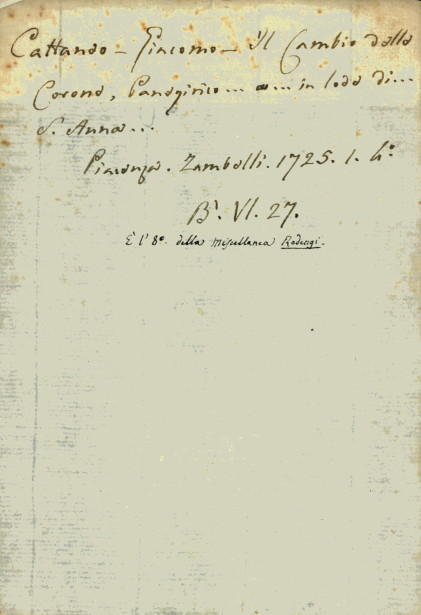 Cattaneo - Giacomo - Il Cambio delle
Corone, Panegirico... in lode di...
S. Anna...
Piacenza. Zambelli. 1725. 1. 4°
B. VI. 27.
È l'8°. della Miscellanea